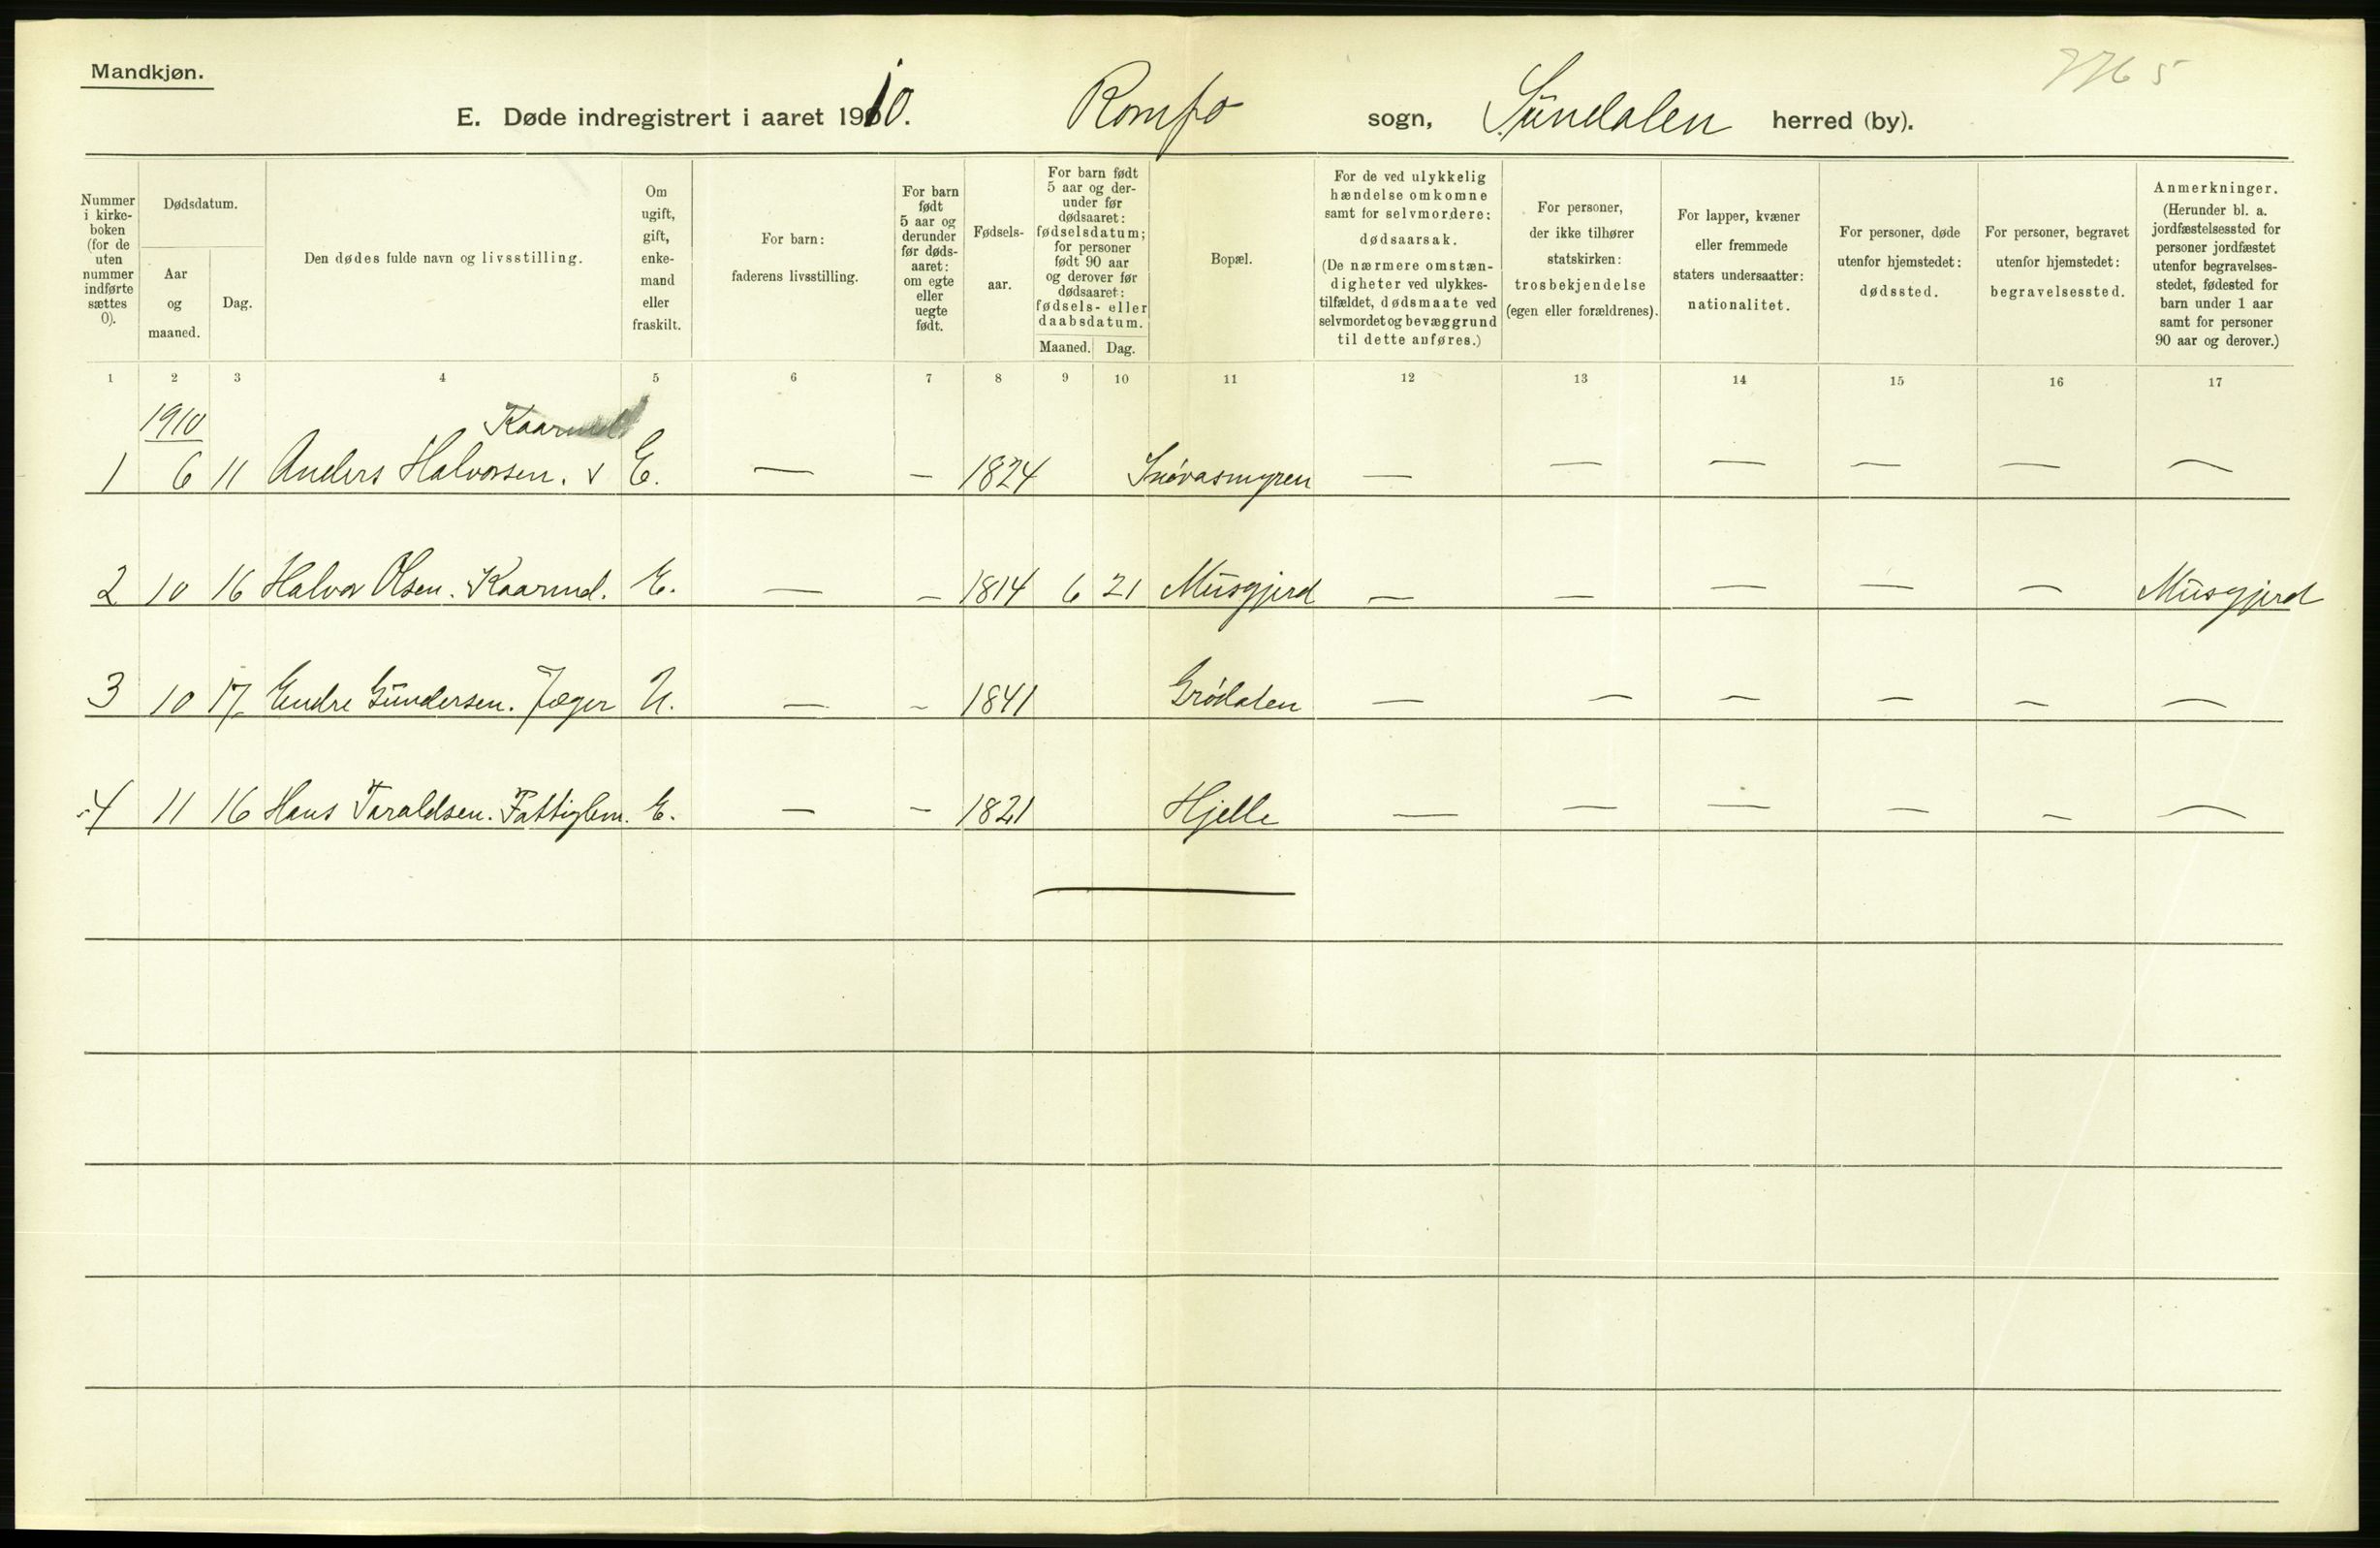 Mandkjøn.
7765
E. Døde indregistrert i aaret 1910. Romfo sogn, Sündalen herred (by).
Nummer i kirke- boken (for de uten nummer indførte sættes 0).
Dødsdatum.
Aar og maaned.
Dag.
Den dødes fulde navn og livsstilling.
Om ugift, gift, enke- mand eller fraskilt.
For barn: faderens livsstilling.
For barn født 5 aar og derunder før døds- aaret: om egte eller uegte født.
Fødsels- aar.
For barn født 5 aar og der- under før dødsaaret: fødselsdatum; for personer født 90 aar og derover før dødsaaret: fødsels- eller daabsdatum.
Maaned. Dag.
Bopæl.
For de ved ulykkelig hændelse omkomne samt for selvmordere: dødsaarsak. (De nærmere omstæn- digheter ved ulykkes- tilfældet, dødsmaate ved selvmordet og bevæggrund til dette anføres.)
For personer, der ikke tilhører statskirken: trosbekjendelse (egen eller forældrenes).
For lapper, kvæner eller fremmede staters undersaatter: nationalitet.
For personer, døde utenfor hjemstedet: dødssted.
For personer, begravet utenfor hjemstedet: begravelsessted.
Anmerkninger. (Herunder bl. a. jordfæstelsessted for personer jordfæstet utenfor begravelses- stedet, fødested for barn under 1 aar samt for personer 90 aar og derover.)
1 2 3 4 5 6 7 8 9 10 11 12 13 14 15 16 17
1910 Kaarmd
1 6 11 Anders Halvorsen. v E. — — 1824 Snøvasmyren — — — — — —
2 10 16 Halvor Olsen. Kaarmd. E. — — 1814 6 21 Müsgjerd — — — — — Müsgjerd
3 10 17 Endre Gündersen. Jæger U. — — 1841 Grødalen — — — — — —
4 11 16 Hans Taraldsen. Fattiglem. E. — — 1821 Hjelle — — — — — —